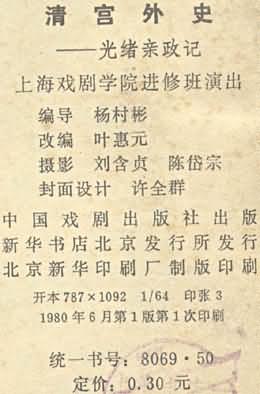 清宫外史
——光绪亲政记
上海戏剧学院进修班演出
编导 杨村彬
改编 叶惠元
摄影 刘含贞 陈岱宗
封面设计 许全群
中国戏剧出版社出版
新华书店北京发行所发行
北京新华印刷厂制版印刷
开本787×1092 1/64 印张3
1980年6月第1版第1次印刷
统一书号：8069·50
定价：0.30元